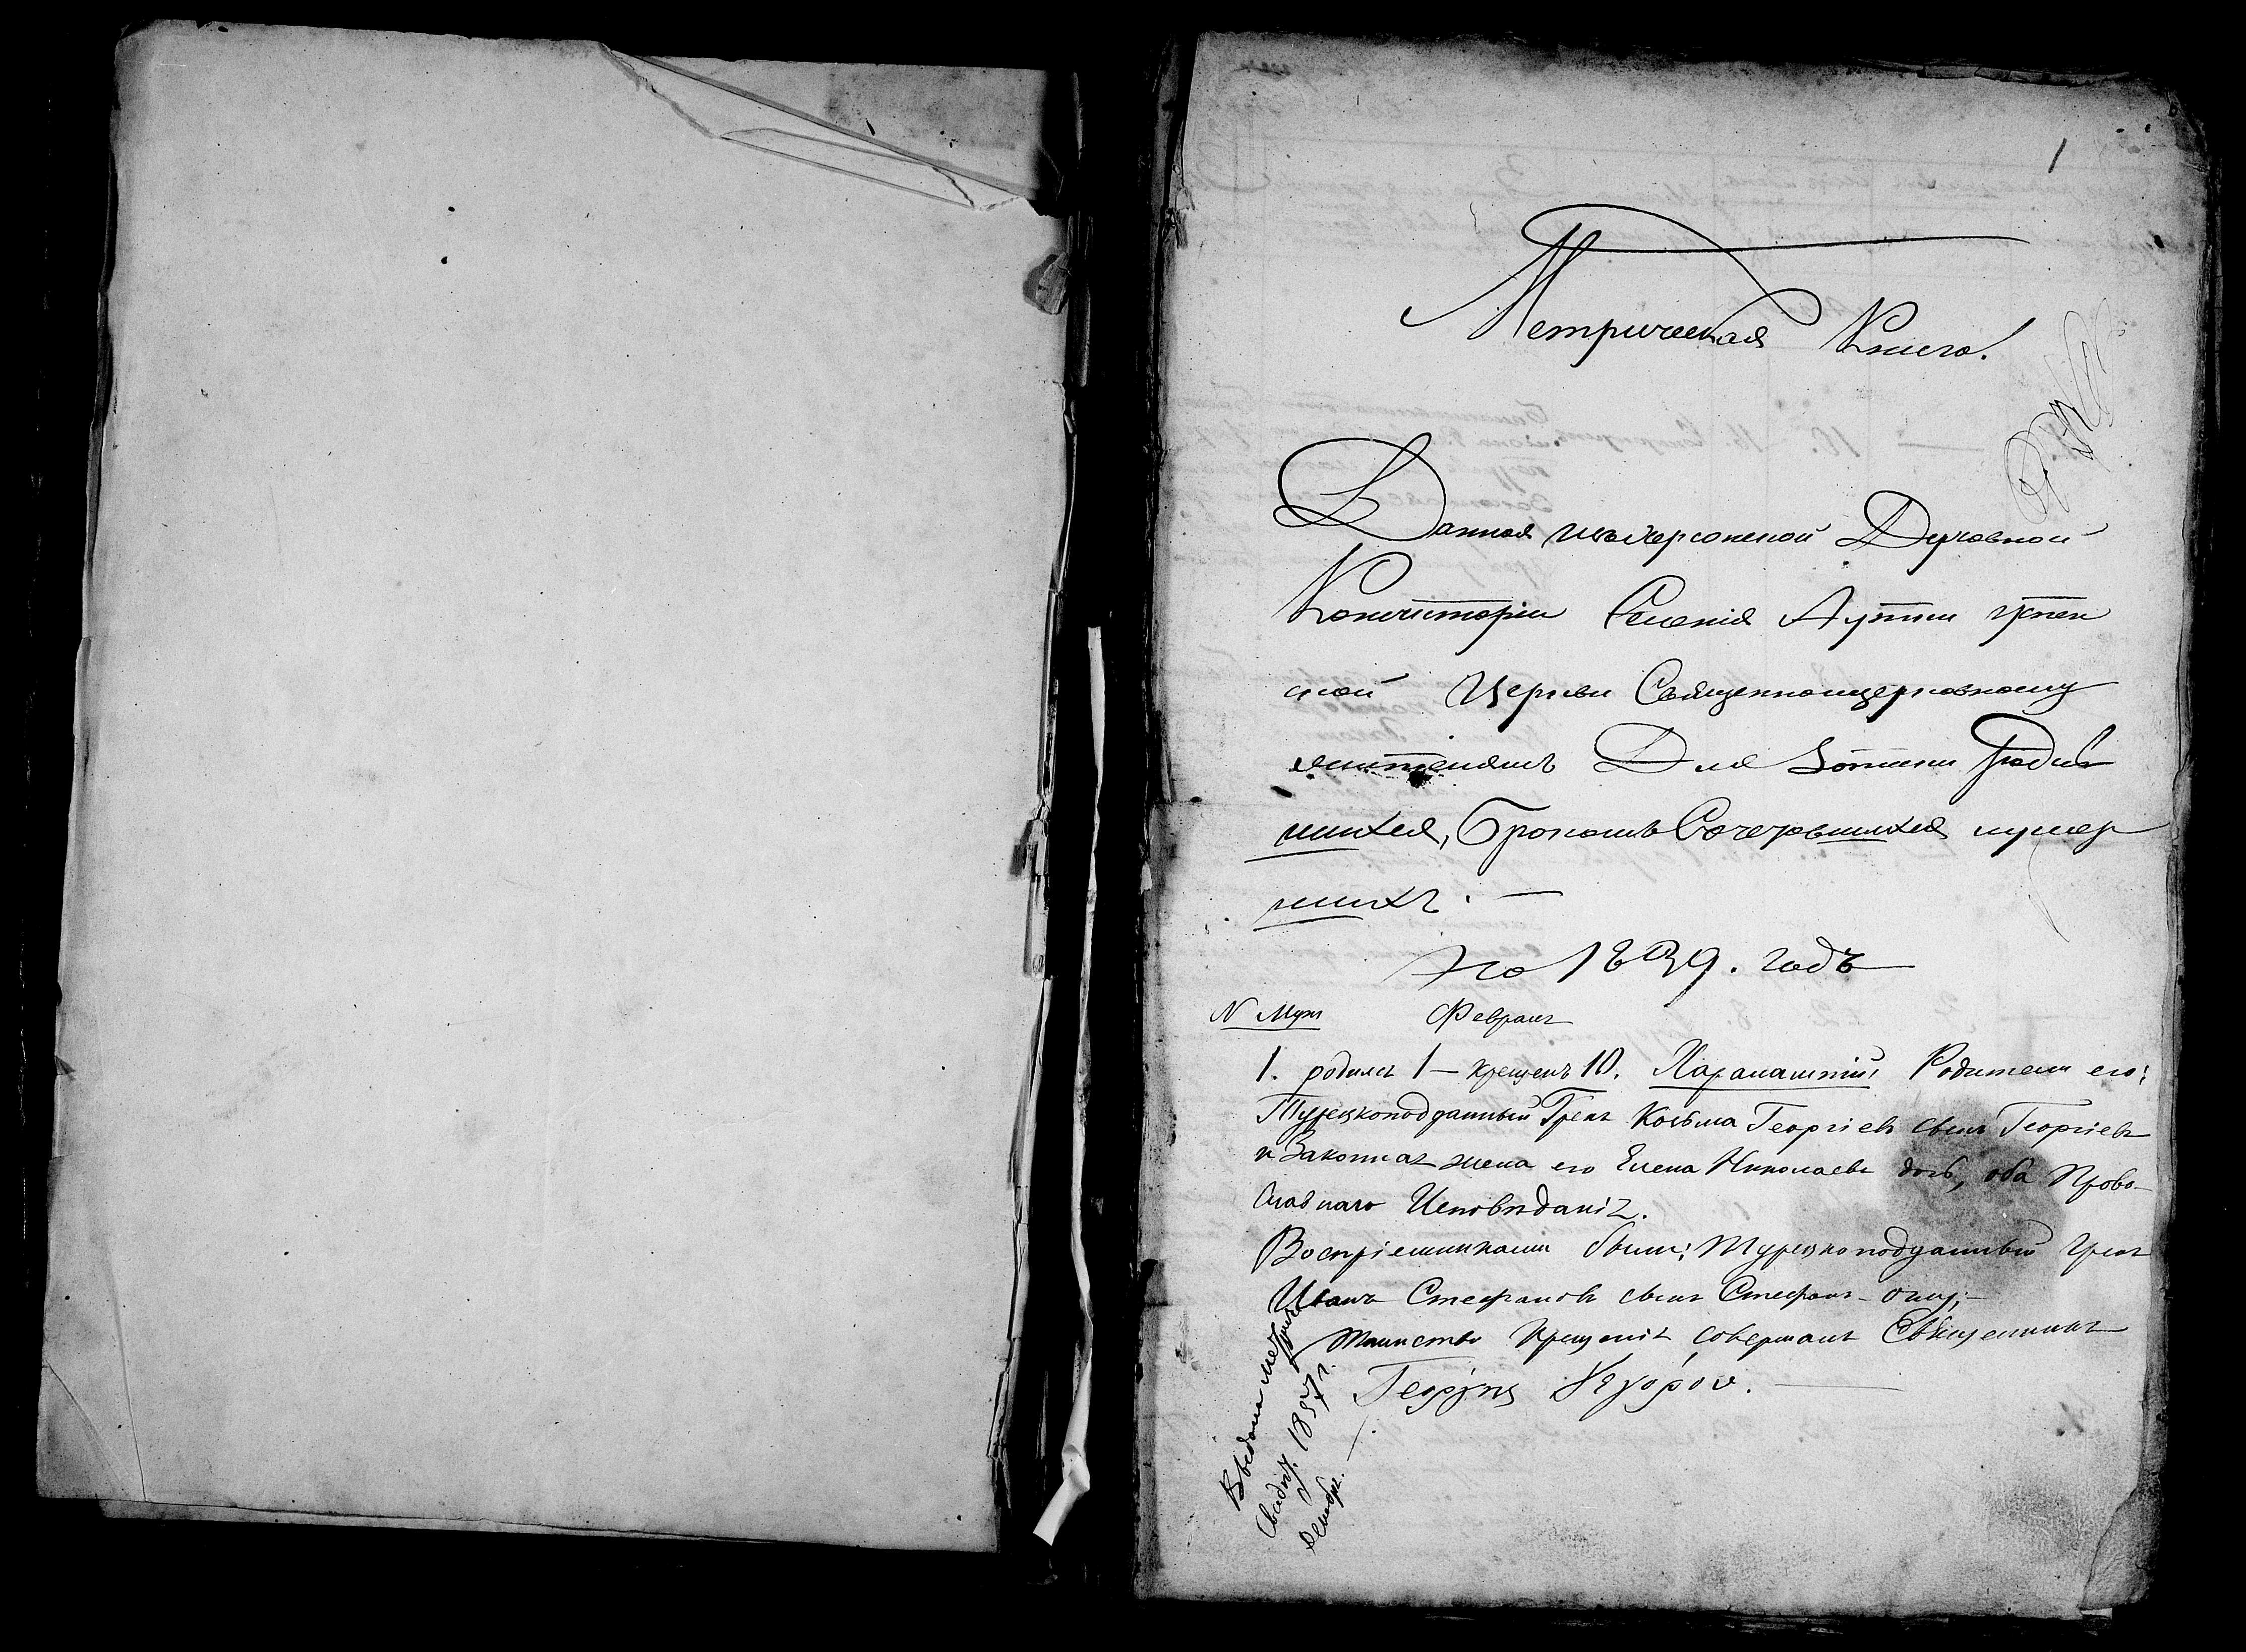 1
Метрическая Книга.
Данная изъ Херсонской Духовной
Консисторіи Селенія Аутки Успен
ской Церкви Священноцерковно
служителямъ Для Записки Родив
шихся, Бракомъ Сочетавшихся иумер
шихъ. —
на 1839. годъ
N Муж Февраль
1. родился 1 — крещенъ 10. Харалампій; Родители его:
Турецкоподданный Грекъ Козьма Георгіевъ сынъ Георгіевъ
и Законная жена его Елена Николаева дочь, оба Право-
славнаго Исповѣданія.
Воспріемниками были: Турецкоподданный Грекъ
Иванъ Стефановъ сынъ Стефан-оглу;
Таинство Крещенія совершалъ Священникъ
Георгій
Выдана метрич.
свѣдѣт. 1857 г.
Декабр.